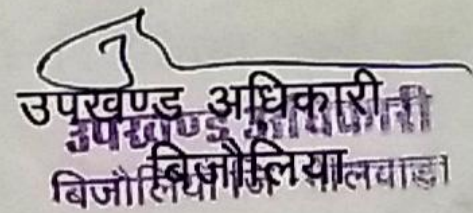 उपखण्ड अधिकारी
उपखण्ड अधिकारी
बिजौलिया
बिजौलिया जिला भीलवाड़ा